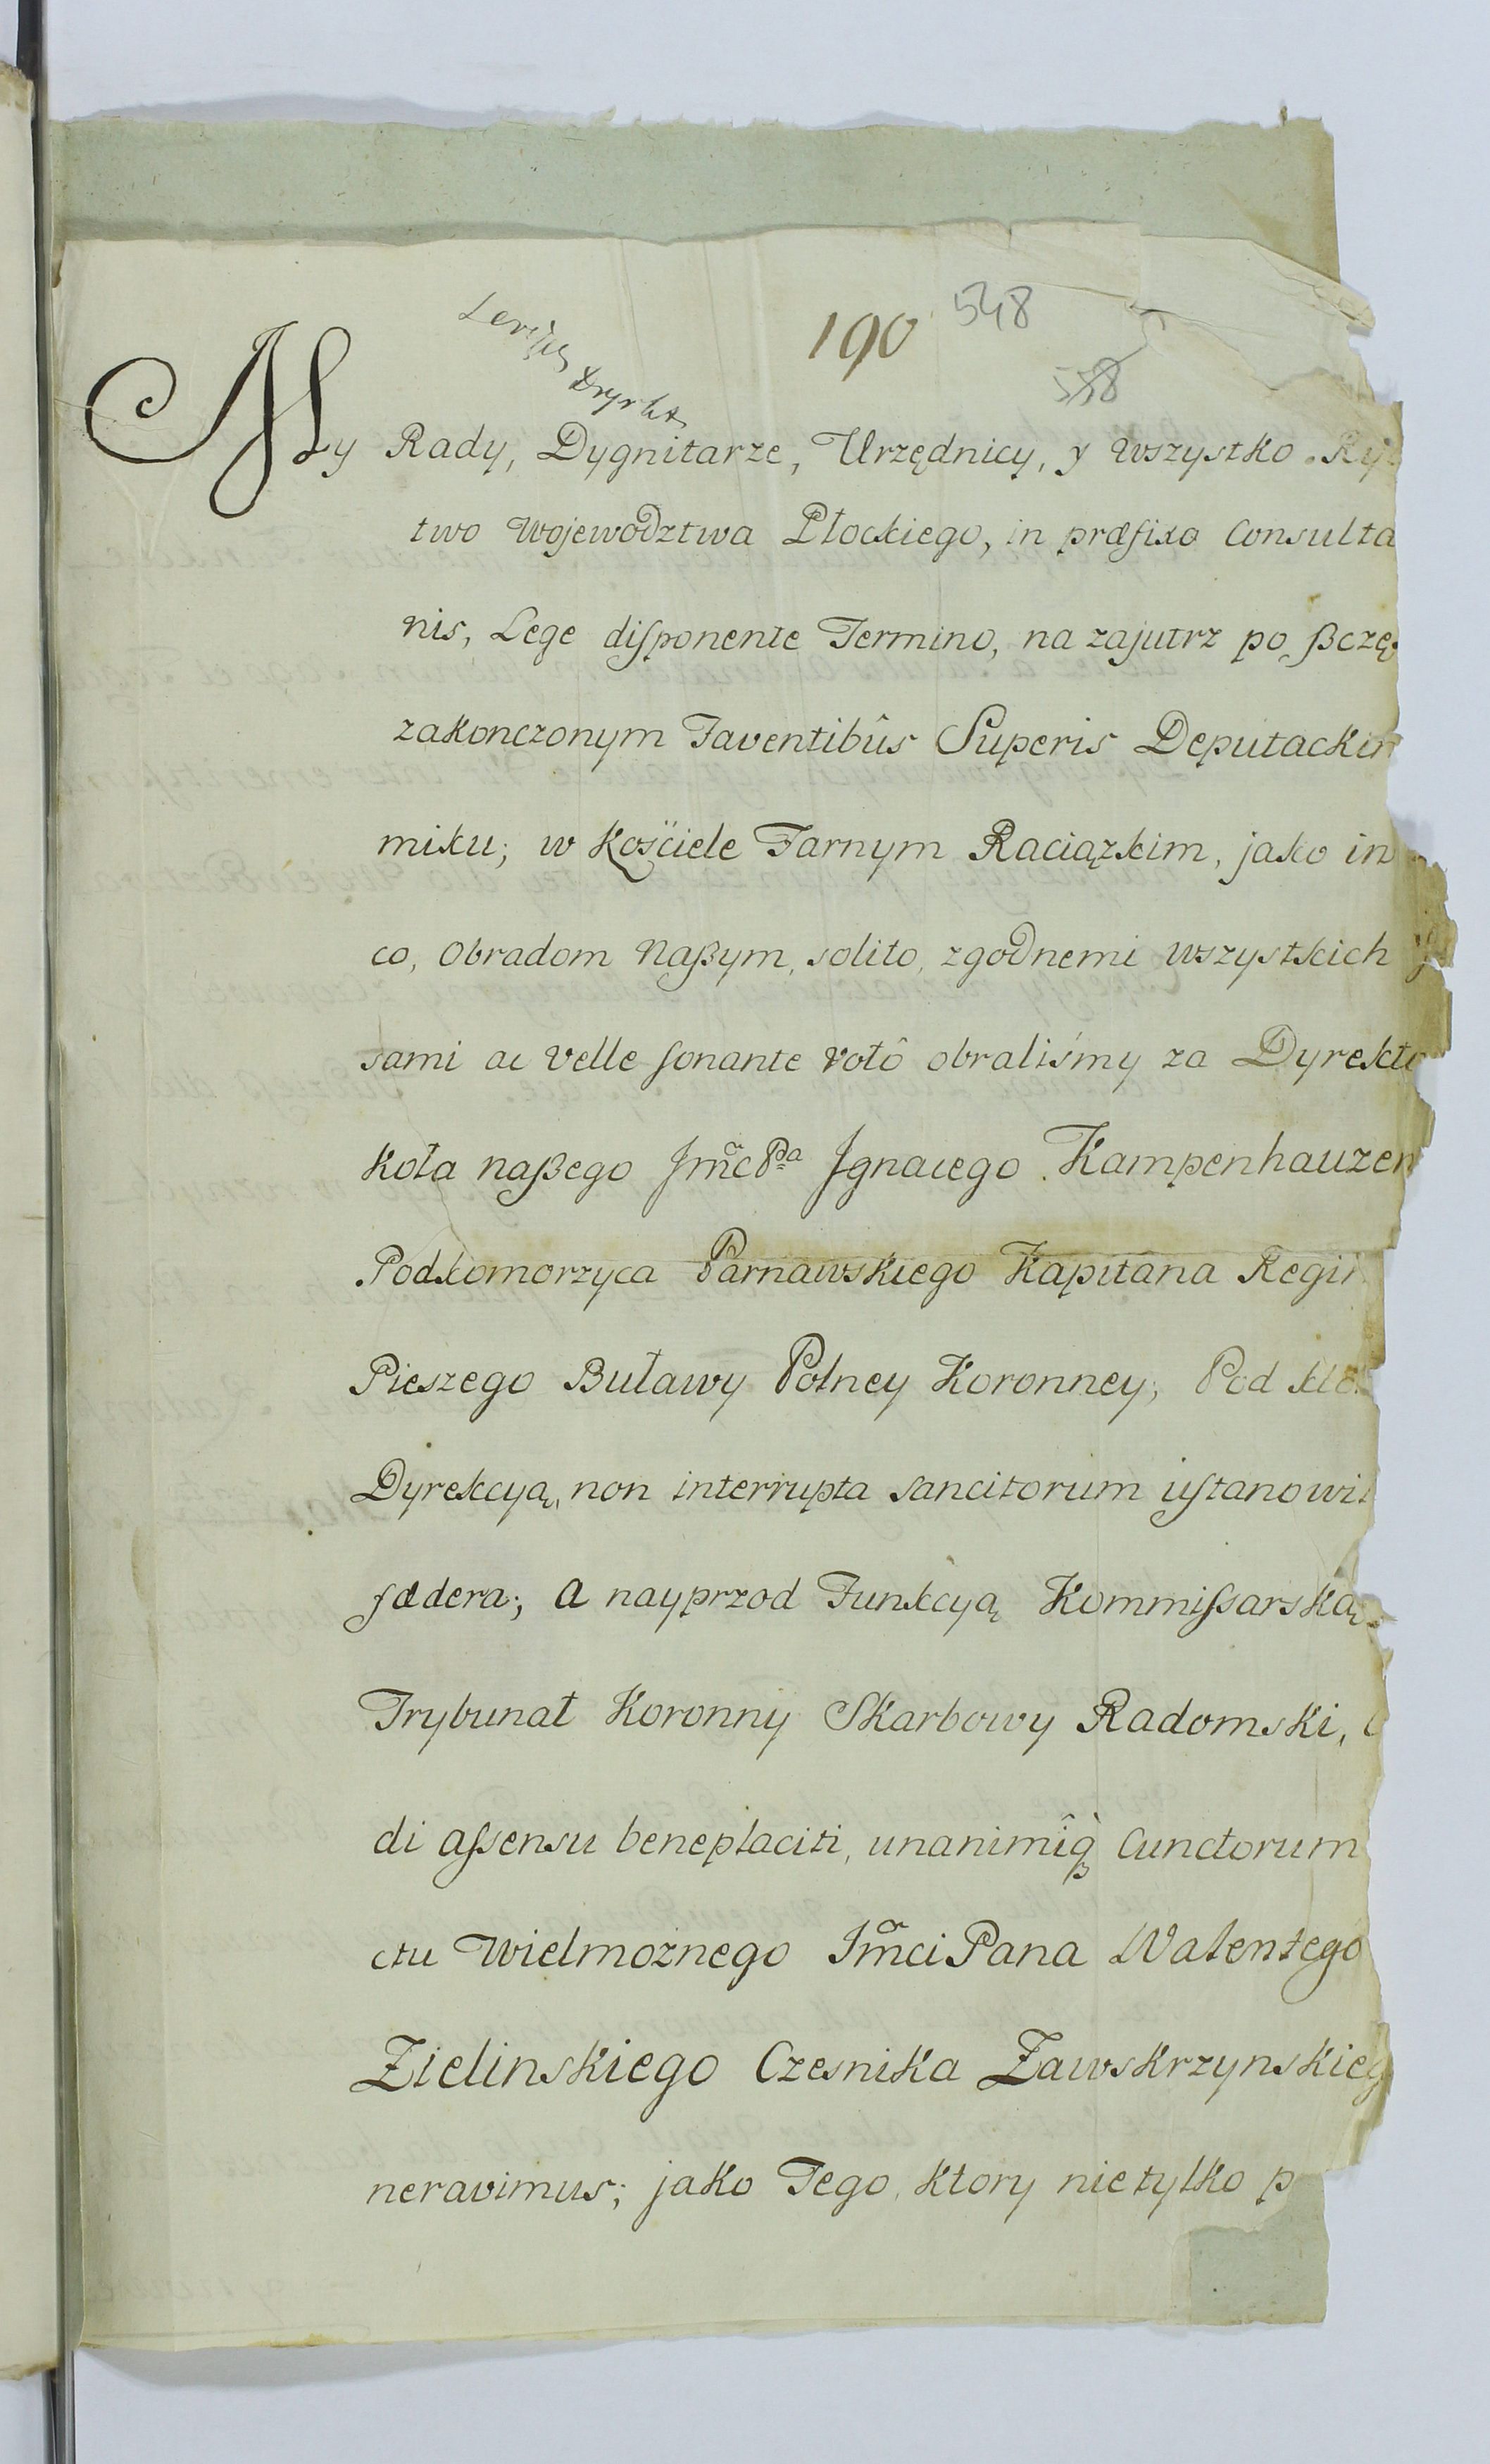 190 548
558
My Rady, Dygnitarze, Urzędnicy, y wszystko Ry
two Wojewodztwa Płockiego, in præfixo Consulta
nis, Lege diſponente Termino, na zajutrz po ßczę
zakonczonym Faventibûs Superis Deputackim
miku; w Kościele Farnym Raciązkim, jako in
co, Obradom Naßym, solito, zgodnemi wszystkich
sami ac Velle ſonante votô obraliśmy za Dyrekto
Koła naßego JmċPa Jgnacego Kampenhauzen
Podkomorzyca Parnawskiego Kapitana Regim
Pieszego Buławy Polney Koronney; Pod kto
Dyrekcyą, non interrupta sancitorum uſtanowi
fœdera; a nayprzod Funkcyą Kommiſsarską
Trybunał Koronny Skarbowy Radomski,
di aſsensu beneplaciti, unanimîq̀ Cunctorum
ctu Wielmożnego Jm̃ci Pana Walentego
Zielinskiego Czesnika Zawskrzynskieg
neravimus; jako Tego, ktory nietylko p